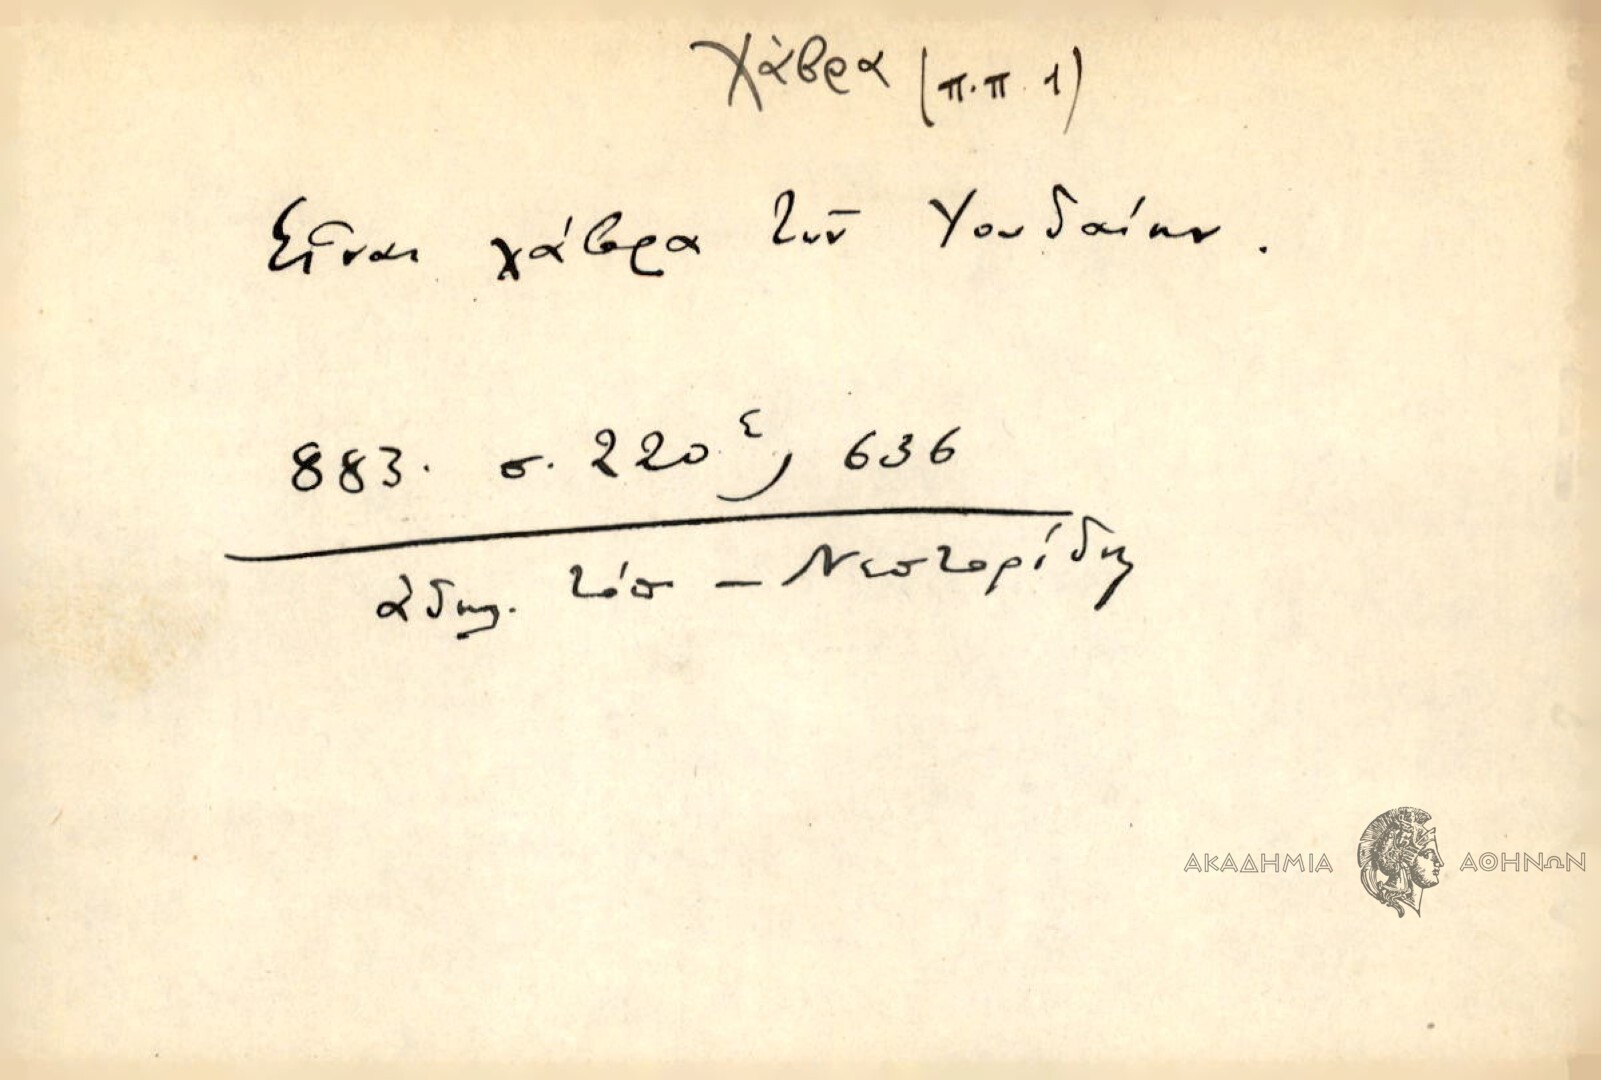 Χάβρα (π.π. 1)
Εἶναι χάβρα τῶν Ἰουδαίων.
883. σ. 220ε, 636
ἀδήλ. τόπ – Νεστορίδης
ΑΚΑΔΗΜΙΑ ΑΘΗΝΩΝ